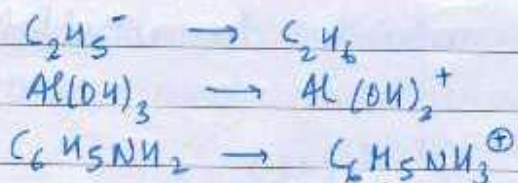 C₂H₅⁻ → C₂H₆
Al(OH)₃ → Al(OH)₂⁺
C₆H₅NH₂ → C₆H₅NH₃⊕